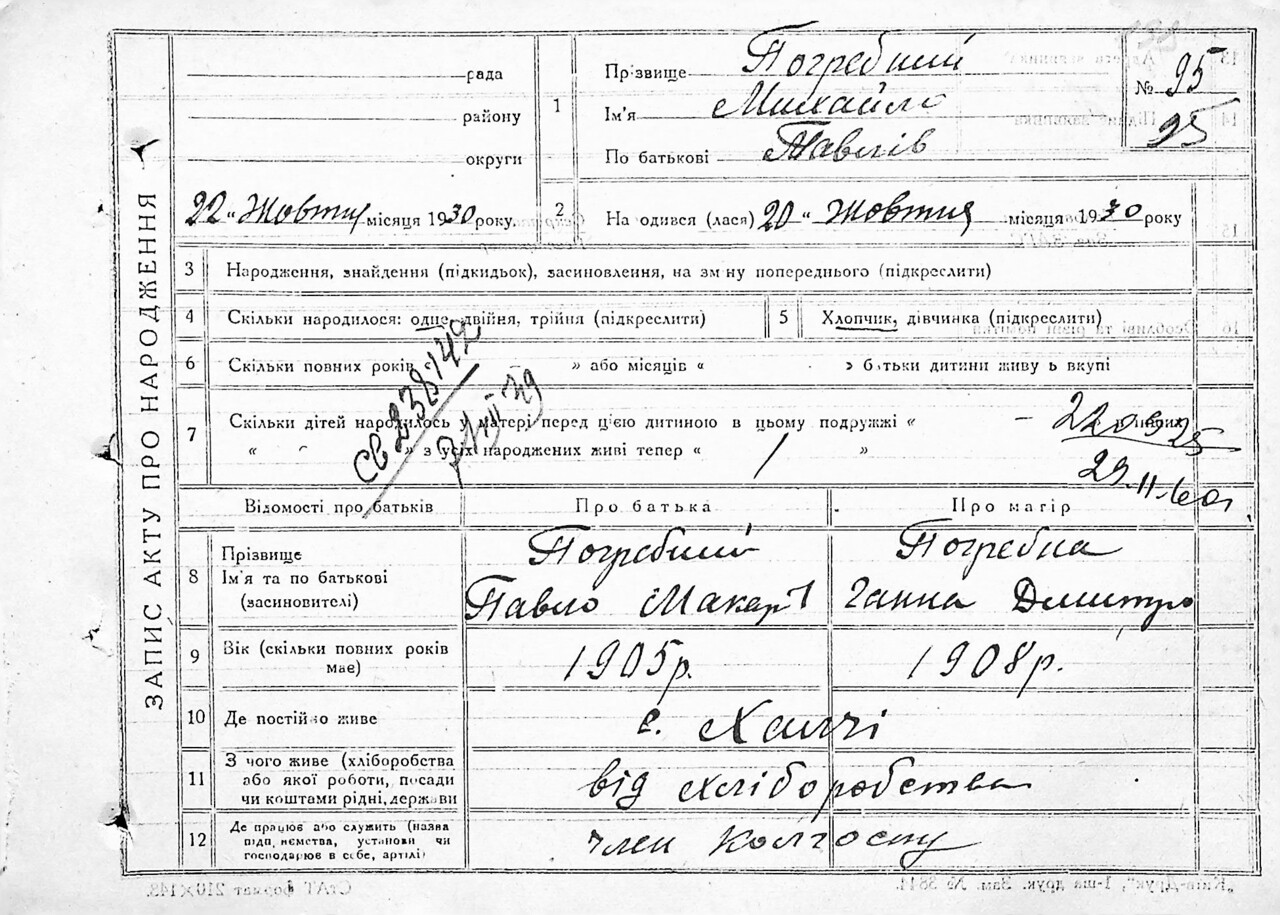 ЗАПИС АКТУ ПРО НАРОДЖЕННЯ
рада
району
округи
22 „ Жовтня місяця 1930 року.
1
Пр·звище Погребний
Ім'я Михайло
По батькові Павлів
№ 95
95
2
На одився (лася) 20 „ Жовтня місяця 1930 року
3 Народження, знайдення (підкидьок), засиновлення, на зм ну попереднього (підкреслити)
4 Скільки народилося: одне, двійня, трійня (підкреслити)
5 Хлопчик, дівчинка (підкреслити)
6 Скільки повних років » або місяців « » батьки дитини живу ь вкупі
7 Скільки дітей народилось у матері перед цією дитиною в цьому подружжі « – інших
« » з усіх народжених живі тепер « / »
св 238142
29-11-60
Відомості про батьків
Про батька
Про матір
8 Прізвище
Ім'я та по батькові
(засиновителі)
Погребний
Павло Макар і
Погребна
Ганна Дмитро
9 Вік (скільки повних років
має)
1905р.
1908р.
10 Де постійно живе
с. Халчі
11 З чого живе (хліборобства
або якої роботи, посади
чи коштами рідні, держави
від хліборобства
12 Де працює або служить (назва
підп, иємства, установи чи
господарює в себе, артілі)
член колгоспу
СтАТ формат 210×148.
„Київ-Друк", 1-ша друк. Зам. № 3841.